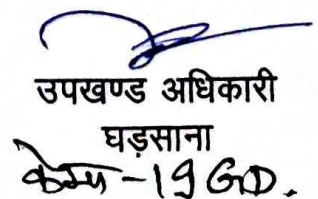 उपखण्ड अधिकारी
घड़साना
केम्प - 19 GD.